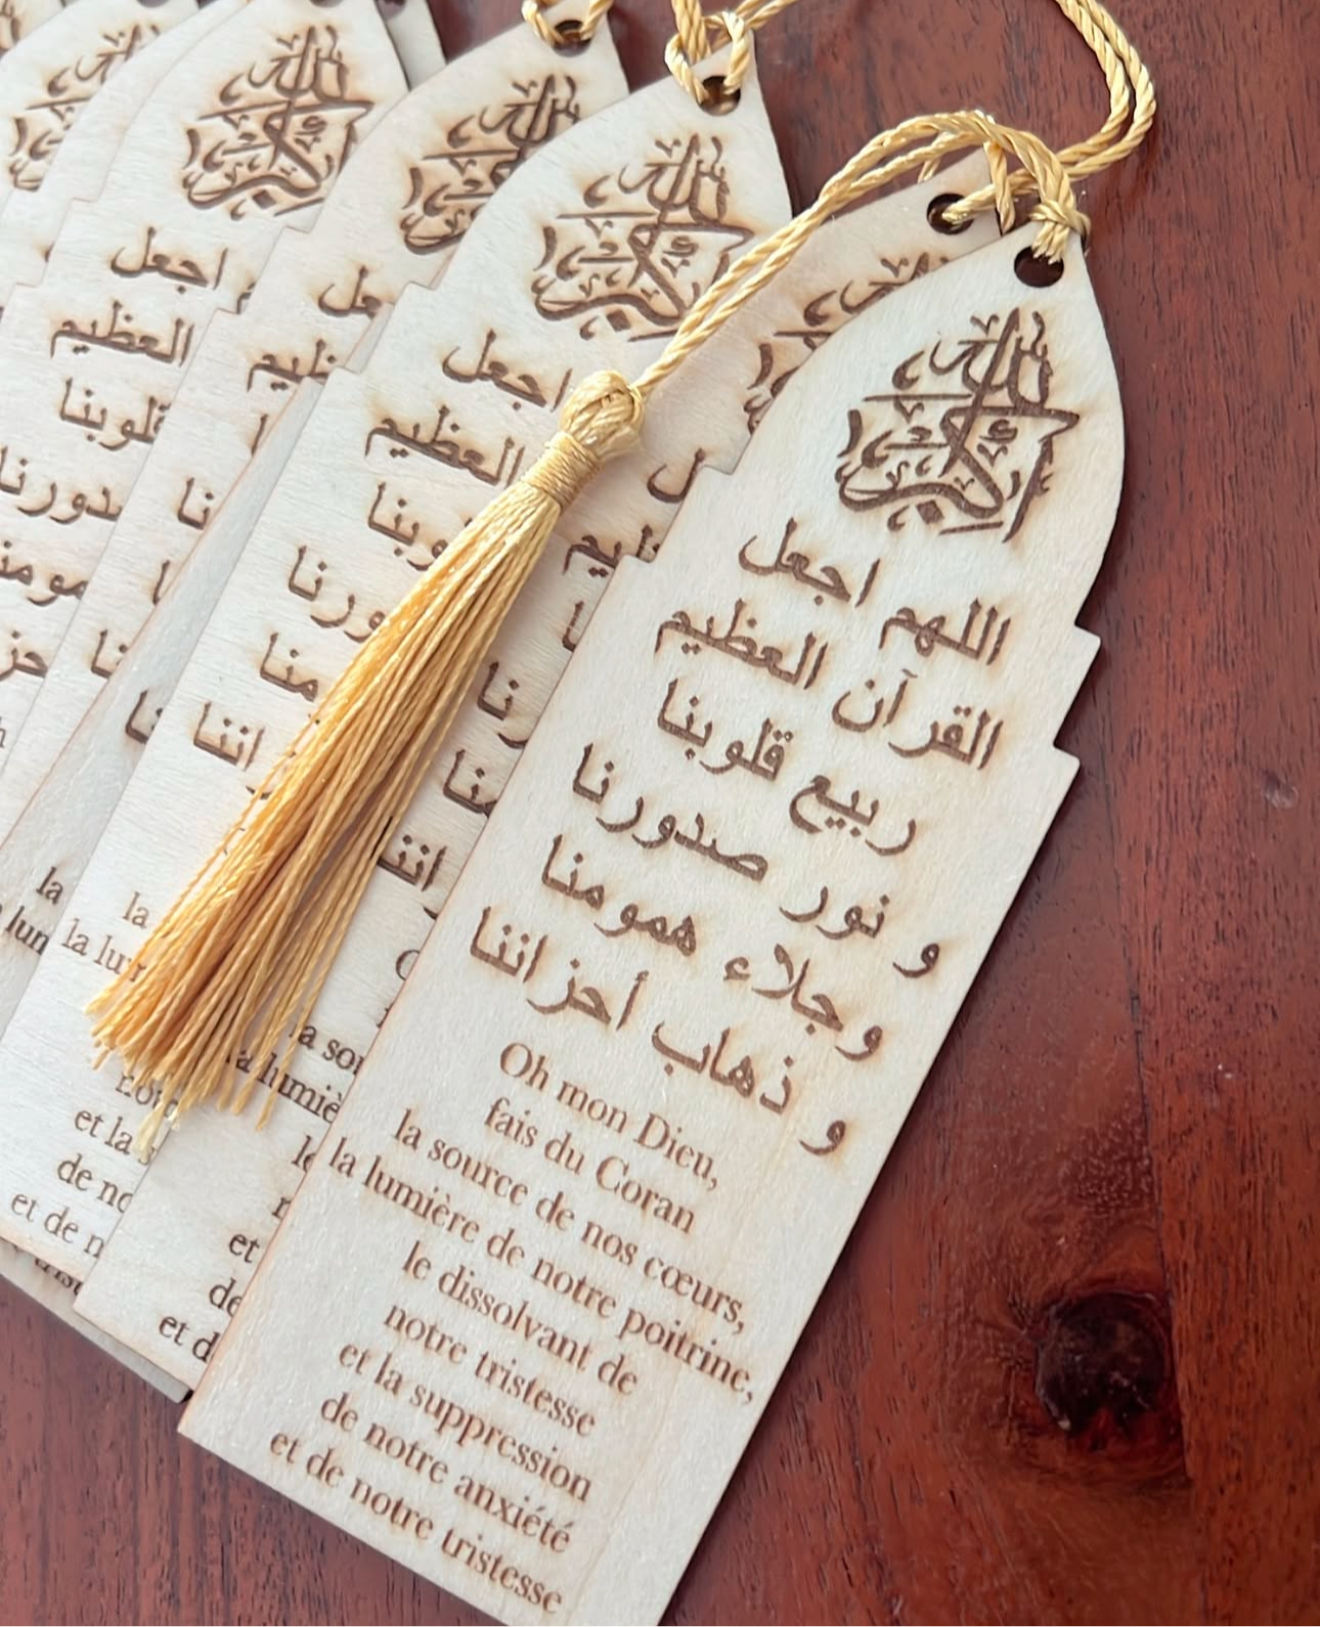 اللهم اجعل
القرآن العظيم
ربيع قلوبنا
و نور صدورنا
وجلاء همومنا
و ذهاب أحزاننا
Oh mon Dieu,
fais du Coran
la source de nos cœurs,
la lumière de notre poitrine,
le dissolvant de
notre tristesse
et la suppression
de notre anxiété
et de notre tristesse